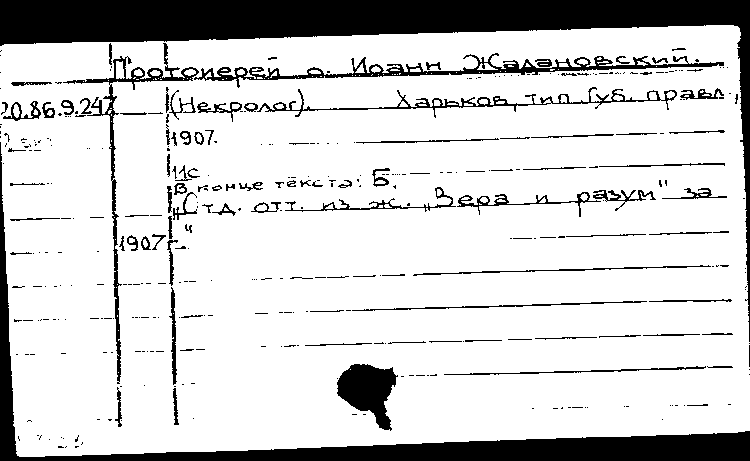 Протоиерей о. Иоанн Жадановский.
20.86.9.247 (Некролог). Харьков, тип. Губ. правл.,
2 экз 1907.
11с
В конце текста: Б.
"Отд. отт. из ж. „Вера и разум" за
1907 г."